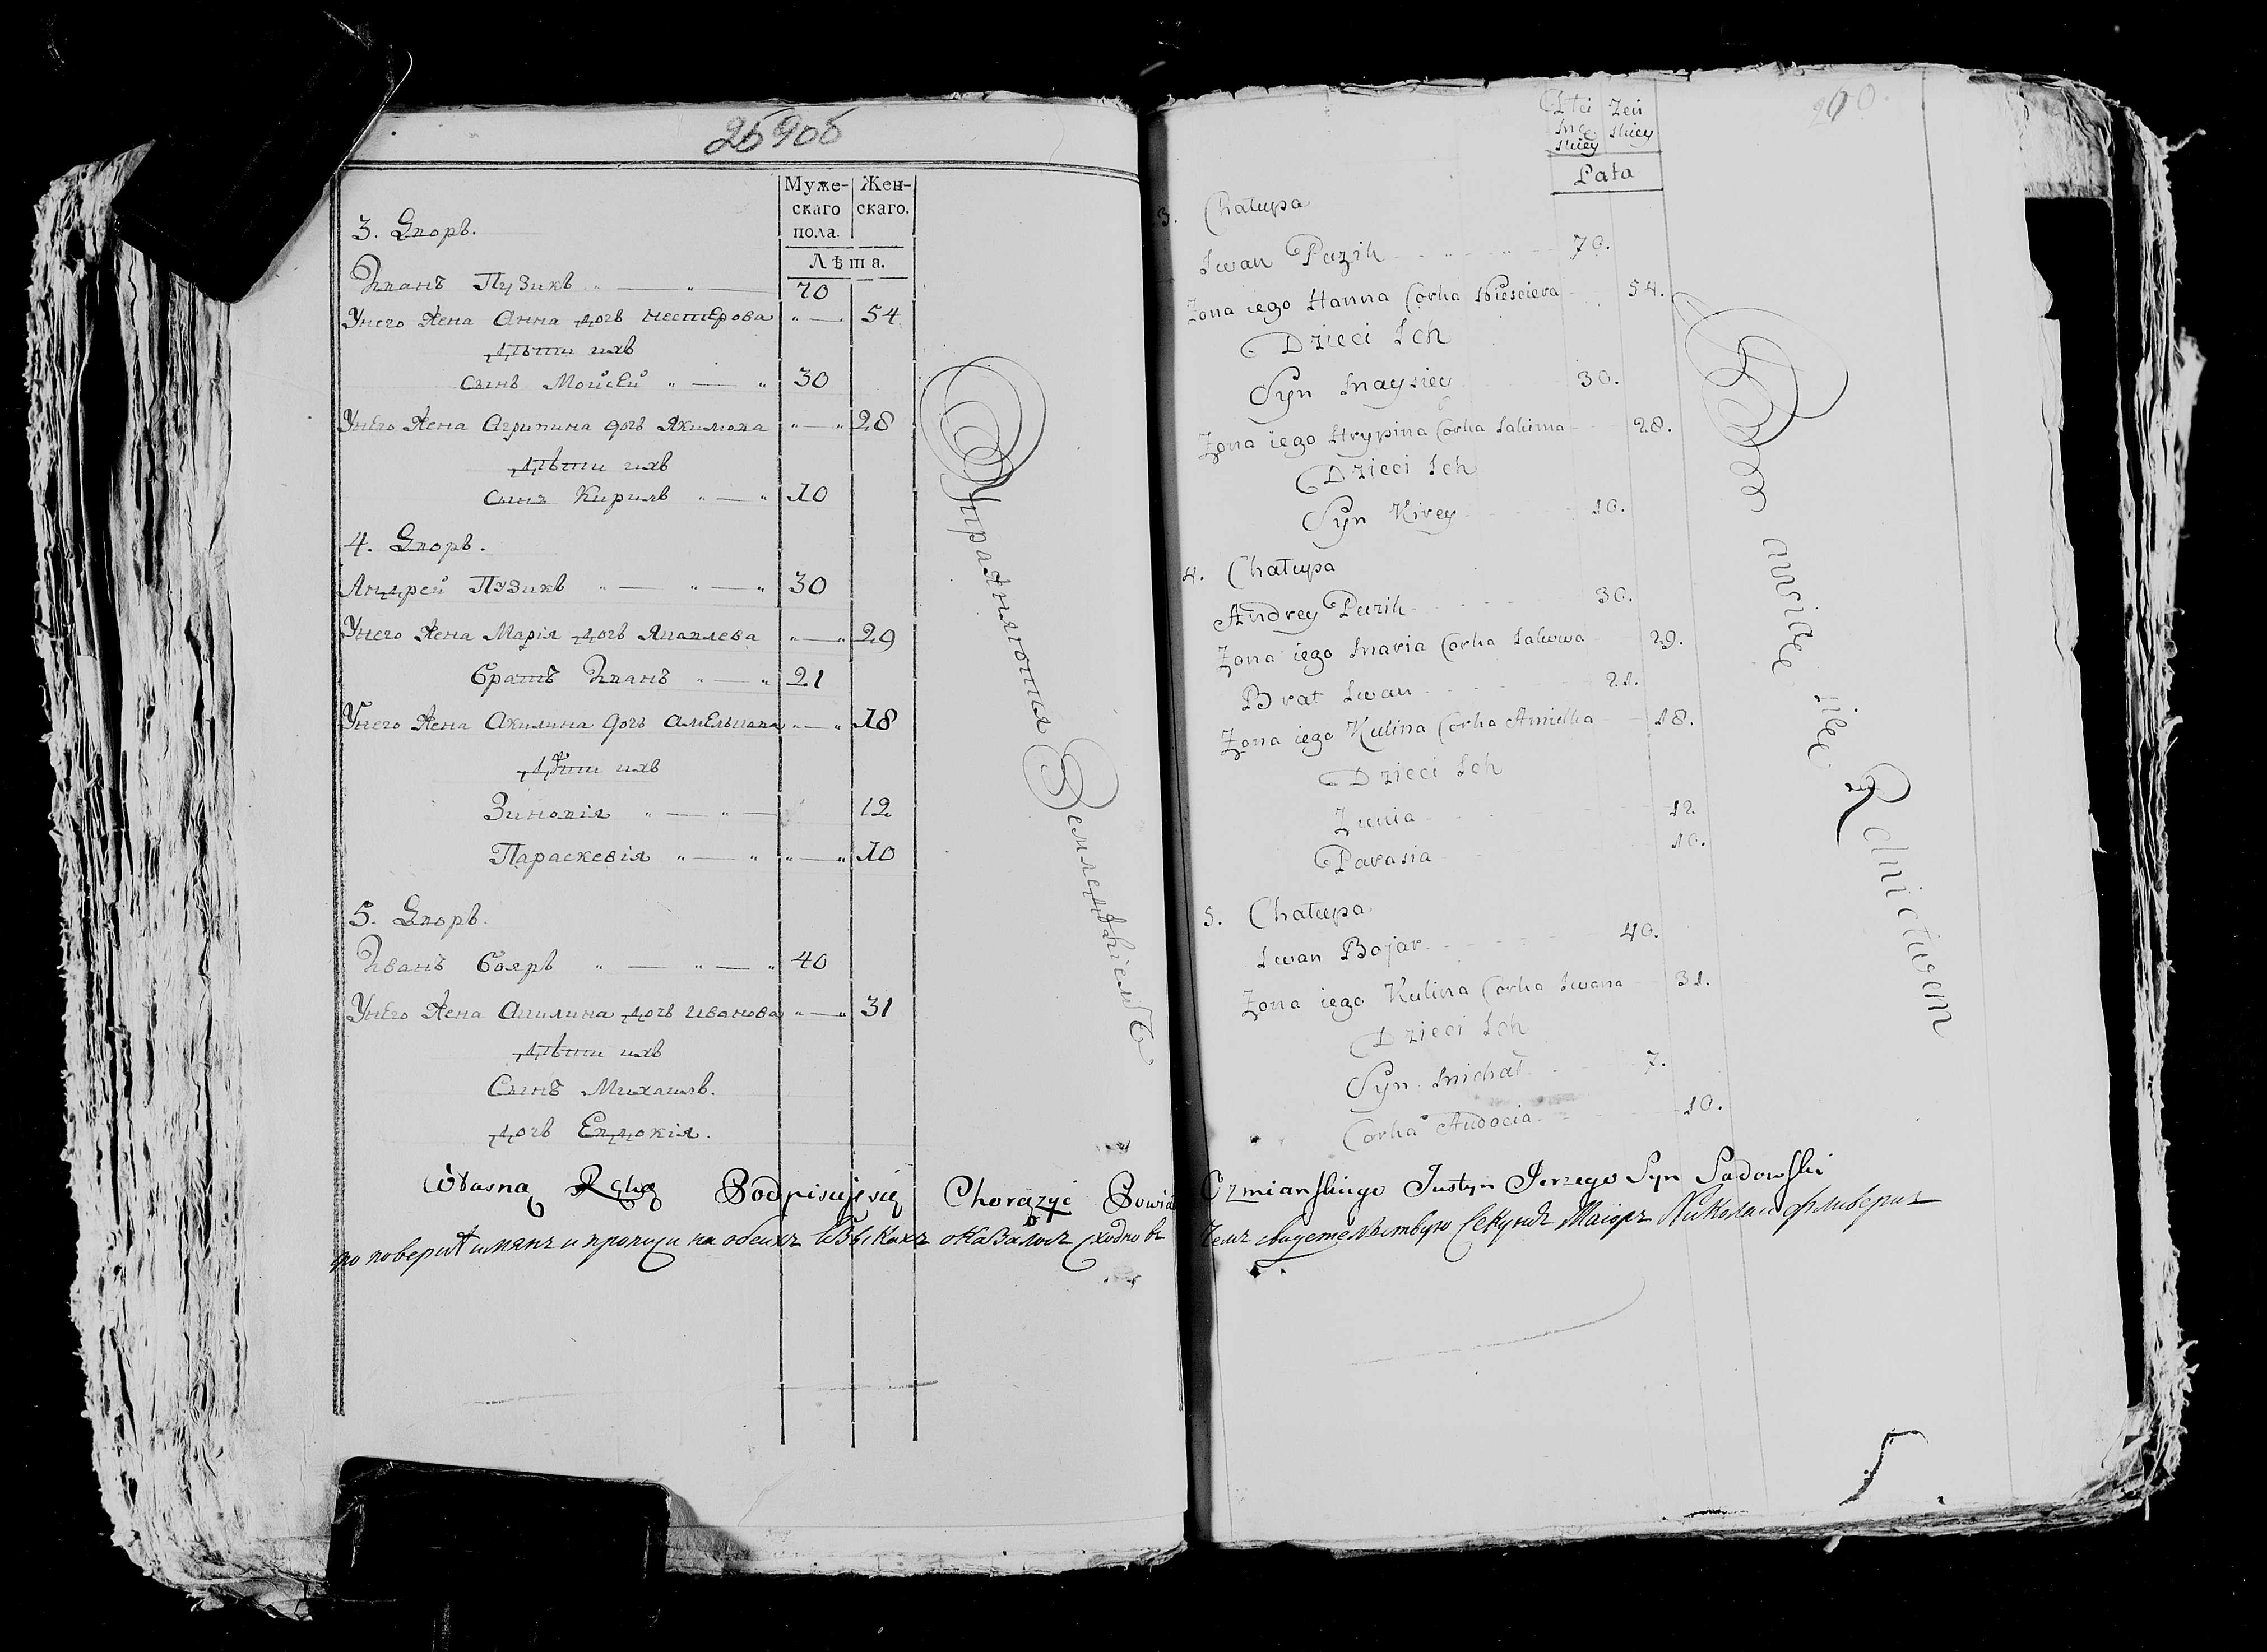 259об
Муже-
скаго
пола.
Жен-
скаго.
Лѣта.
3. Дворъ.
Иванъ Пузикъ 70
Унего жена Анна дочь Нестерова 54
Дѣти ихъ
Сынъ Мойсей 30
Унего жена Агрипина дочь Якимова 28
Дѣти ихъ
Сынъ Кирилъ 10
4. Дворъ.
Андрей Пузикъ 30
Унего жена Марія дочь Яковлева 29
Братъ Иванъ 21
Унего жена Акилина дочь Амельянова 18
Дѣти ихъ
Зиновія 12
Параскевія 10
5. Дворъ.
Иванъ Бояръ 40
Унего жена Акилина дочь Иванова 31
Дѣти ихъ
Сынъ Михаилъ.
Дочь Евдокія.
Упражняются Земледѣліемъ
260.
Płci
Męs
skiey
Żeń
skiey
Lata
3. Chałupa
Iwan Puzik 70.
Zona iego Hanna Corka Niesciera 54.
Dzieci Ich
Syn Maysiey 30.
Zona iego Hrypina Corka Iakima 28.
Dzieci Ich
Syn Kirey 10.
4. Chałupa
Andrey Puzik 30.
Zona iego Maria Corka Iakowa 29.
Brat Iwan 21.
Zona iego Kulina Corka Amielka 18.
Dzieci Ich
Zienia 12.
Parasia 10.
5. Chałupa
Iwan Bojar 40.
Zona iego Kulina Corka Iwana 31.
Dzieci Ich
Syn Michał 7.
Corka Audocia 10.
Bawiące się Rolnictwem
Własną Ręką Podpisuje się Chorązyc Powia Ozmianskiego Justyn Jerzego Syn Sadowski
по поверке имянъ и прочи на обеихъ Языкахъ оказалось сходно въ чемъ свидетельствую Секундъ Маіоръ Николай